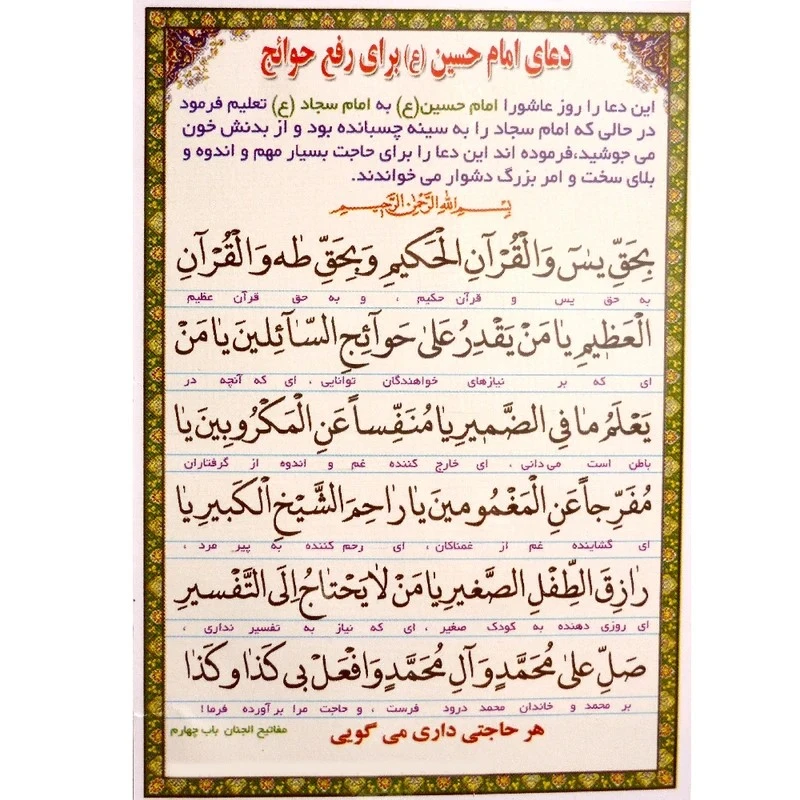 دعای امام حسین (ع) برای رفع حوائج
این دعا را روز عاشورا امام حسین(ع) به امام سجاد (ع) تعلیم فرمود
در حالی که امام سجاد را به سینه چسبانده بود و از بدنش خون
می جوشید،فرموده اند این دعا را برای حاجت بسیار مهم و اندوه و
بلای سخت و امر بزرگ دشوار می خواندند.
بِسْمِ اللهِ الرَّحْمٰنِ الرَّحِیمِ
بِحَقِّ یٰسٓ وَالْقُرْآنِ الْحَکیمِ وَبِحَقِّ طٰه وَالْقُرْآنِ
به حق یس و قرآن حکیم ، و به حق قرآن عظیم
الْعَظیٖمِ یٰا مَنْ یَقْدِرُ عَلیٰ حَوآئِجِ السّٰآئِلینَ یٰا مَنْ
ای که بر نیازهای خواهندگان توانایی ، ای که آنچه در
یَعْلَمُ مٰا فِی الضَّمیٖرِ یٰا مُنَفِّساً عَنِ الْمَکْرُوبینَ یٰا
باطن است می دانی ، ای خارج کننده غم و اندوه از گرفتاران
مُفَرِّجاً عَنِ الْمَغْمُومینَ یٰا رٰاحِمَ الشَّیْخِ الْکَبیرِ یٰا
ای گشاینده غم از غمناکان ، ای رحم کننده به پیر مرد ،
رٰازِقَ الطِّفْلِ الصَّغیرِ یٰا مَنْ لٰا یَحْتٰاجُ اِلَی التَّفْسیرِ
ای روزی دهنده به کودک صغیر ، ای که نیاز به تفسیر نداری ،
صَلِّ عَلیٰ مُحَمَّدٍ وَآلِ مُحَمَّدٍ وَافْعَلْ بی کَذٰا وکَذٰا
بر محمد و خاندان محمد درود فرست ، و حاجت مرا بر آورده فرما!
هر حاجتی داری می گویی
مفاتیح الجنان باب چهارم